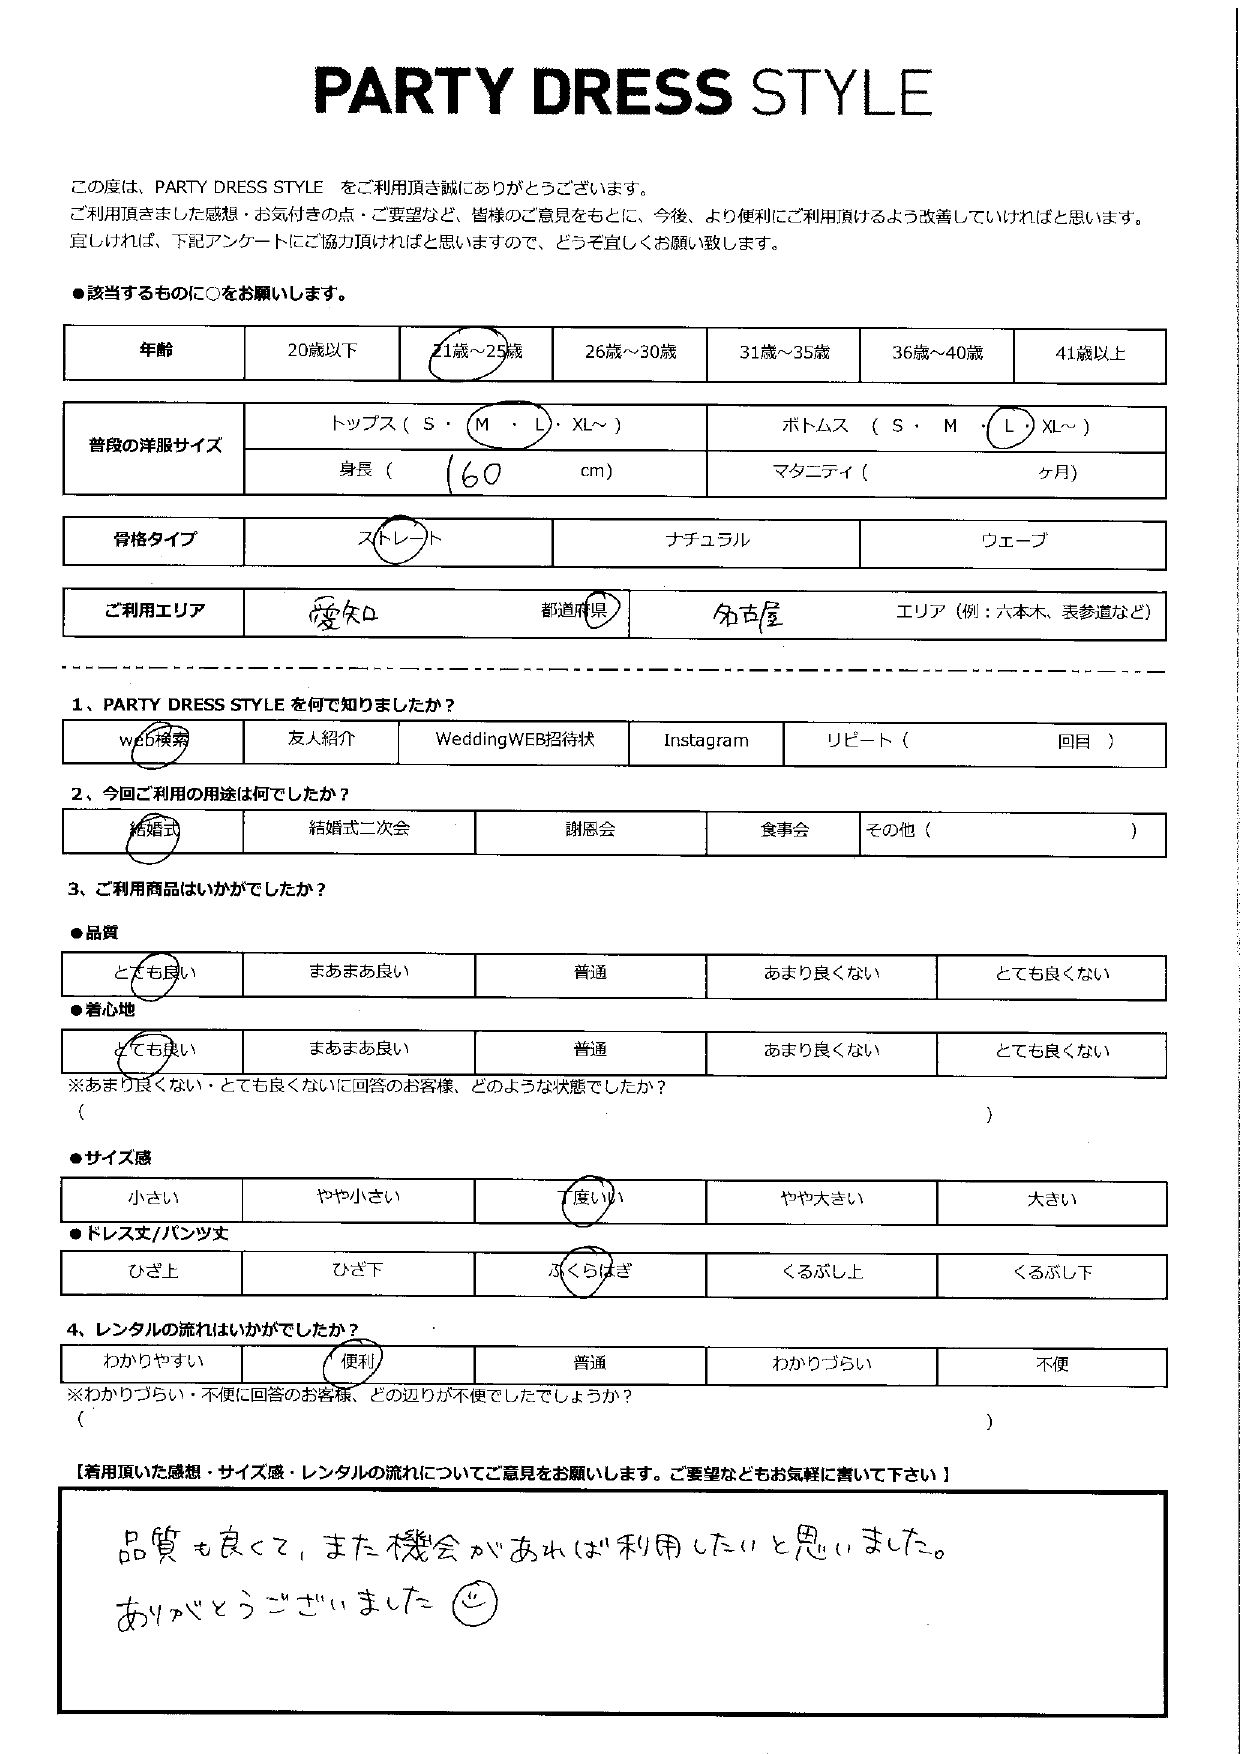 PARTY DRESS STYLE
この度は、PARTY DRESS STYLE をご利用頂き誠にありがとうございます。
ご利用頂きました感想・お気付きの点・ご要望など、皆様のご意見をもとに、今後、より便利にご利用頂けるよう改善していければと思います。
宜しければ、下記アンケートにご協力頂ければと思いますので、どうぞ宜しくお願い致します。
●該当するものに○をお願いします。
年齢 20歳以下 21歳～25歳 26歳～30歳 31歳～35歳 36歳～40歳 41歳以上
普段の洋服サイズ トップス ( S ・ M ・ L ・ XL～ ) ボトムス ( S ・ M ・ L ・ XL～ )
身長 ( 160 cm) マタニティ ( ヶ月)
骨格タイプ ストレート ナチュラル ウェーブ
ご利用エリア 愛知 都道府県 名古屋 エリア（例：六本木、表参道など）
1、PARTY DRESS STYLE を何で知りましたか？
web検索 友人紹介 WeddingWEB招待状 Instagram リピート ( 回目 )
2、今回ご利用の用途は何でしたか？
結婚式 結婚式二次会 謝恩会 食事会 その他 ( )
3、ご利用商品はいかがでしたか？
●品質
とても良い まあまあ良い 普通 あまり良くない とても良くない
●着心地
とても良い まあまあ良い 普通 あまり良くない とても良くない
※あまり良くない・とても良くないに回答のお客様、どのような状態でしたか？
( )
●サイズ感
小さい やや小さい 丁度いい やや大きい 大きい
●ドレス丈/パンツ丈
ひざ上 ひざ下 ふくらはぎ くるぶし上 くるぶし下
4、レンタルの流れはいかがでしたか？
わかりやすい 便利 普通 わかりづらい 不便
※わかりづらい・不便に回答のお客様、どの辺りが不便でしたでしょうか？
( )
【着用頂いた感想・サイズ感・レンタルの流れについてご意見をお願いします。ご要望などもお気軽に書いて下さい】
品質も良くて、また機会があれば利用したいと思いました。
ありがとうございました